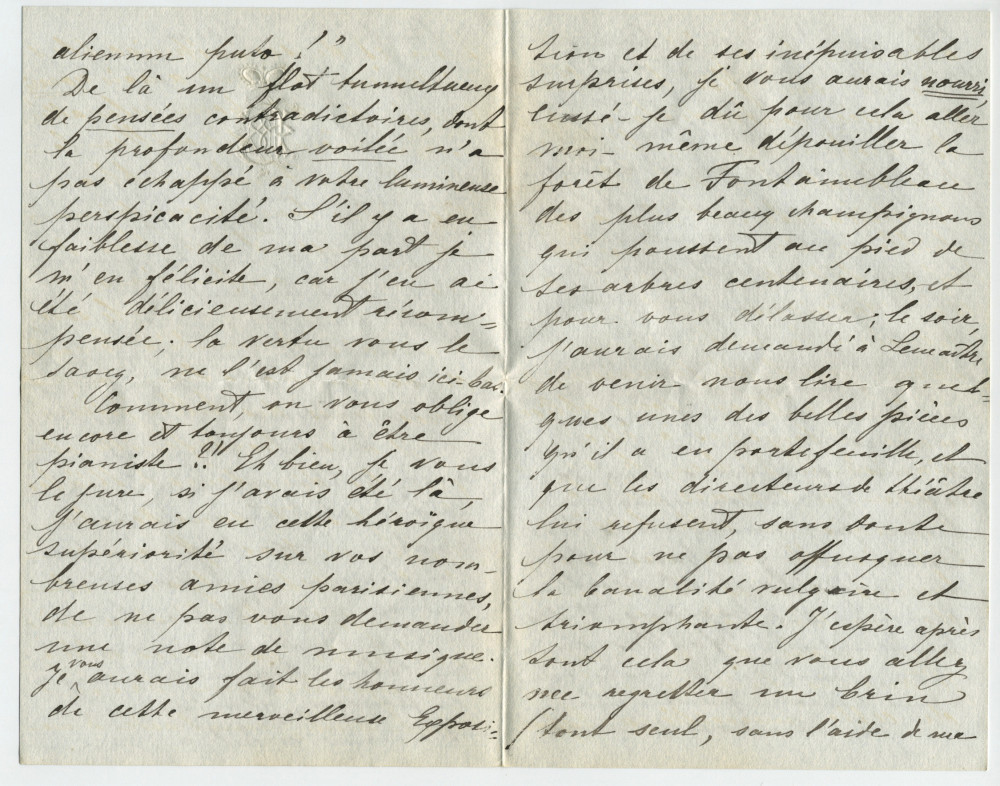 alienum puto!"
De là un flot tumultueux
de pensées contradictoires, dont
la profondeur voilée n'a
pas échappé à votre lumineuse
perspicacité. S'il y a eu
faiblesse de ma part je
m'en félicite, car j'en ai
été délicieusement récom=
pensée; la vertu vous le
savez, ne l'est jamais ici-bas.
Comment, on vous oblige
encore et toujours à être
pianiste?! Eh bien, je vous
le jure, si j'avais été là,
j'aurais eu cette héroïque
supériorité sur vos nom-
breuses amies parisiennes,
de ne pas vous demander
une note de musique.
Je vous aurais fait les honneurs
de cette merveilleuse Exposi=
tion et de ses inépuisables
surprises, je vous aurais nourri
eussé-je dû pour cela aller
moi-même dépouiller la
forêt de Fontainebleau
des plus beaux champignons
qui poussent au pied de
ses arbres centenaires, et
pour vous délasser, le soir,
j'aurais demandé à Lemaître
de venir nous lire quel=
ques unes des belles pièces
qu'il a en portefeuille, et
que les directeurs de théâtre
lui refusent, sans doute
pour ne pas offusquer
la banalité vulgaire et
triomphante. J'espère après
tout cela que vous allez
me regretter un brin
(tout seul, sans l'aide de me